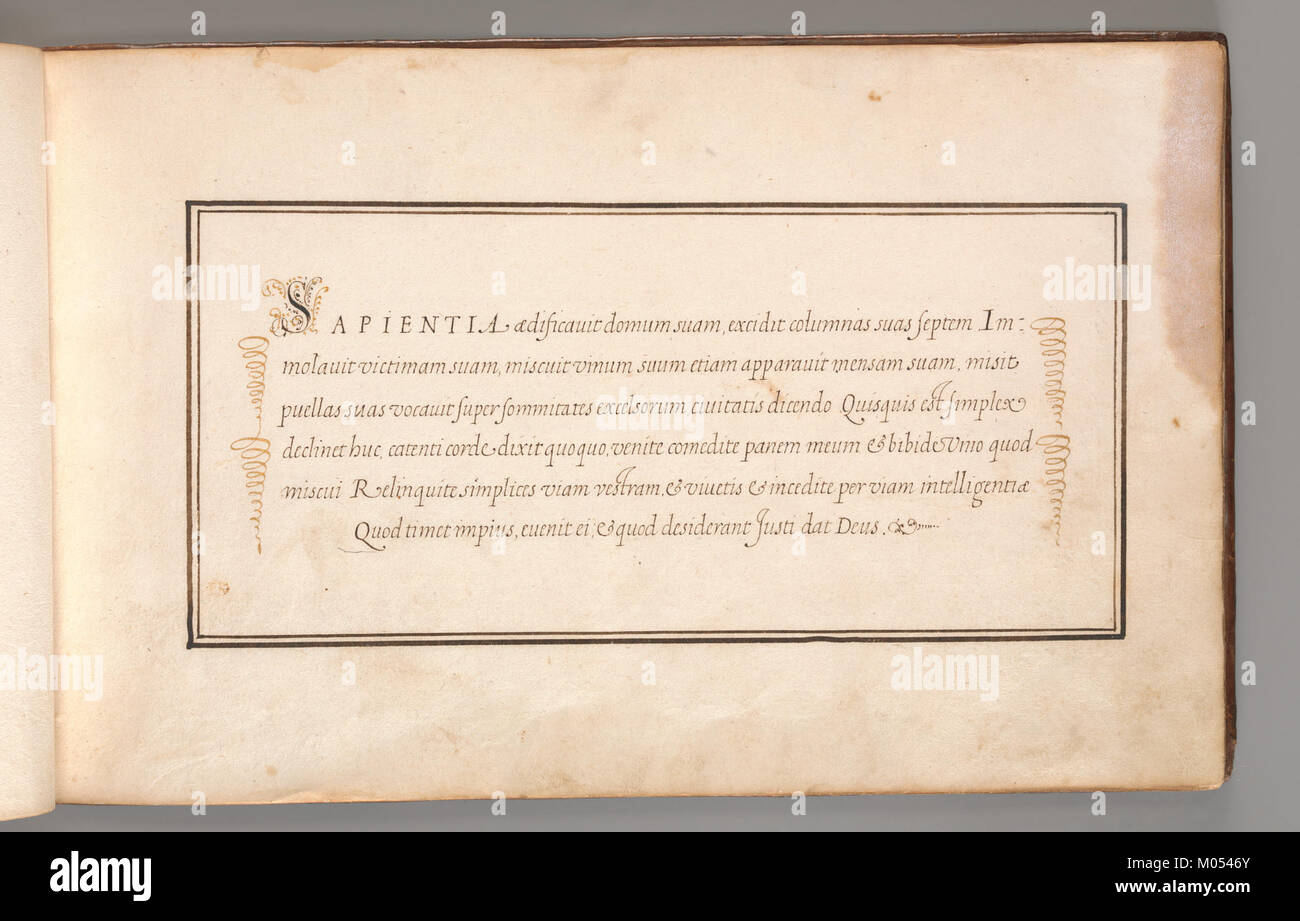 SAPIENTIA ædificavit domum suam, excidit columnas suas septem Im-
molavit victimam suam, miscuit vinum suum etiam apparavit mensam suam, misit
puellas suas vocavit super sommitates excelsorum civitatis dicendo Quisquis est simplex
declinet huc, catenti corde dixit quoquo, venite comedite panem meum & bibide vino quod
miscui Relinquite simplices viam vestram, & vivetis & incedite per viam intelligentiæ
Quod timet impius, evenit ei, & quod desiderant Justi dat Deus.
alamy
alamy stock photo
M0546Y
www.alamy.com